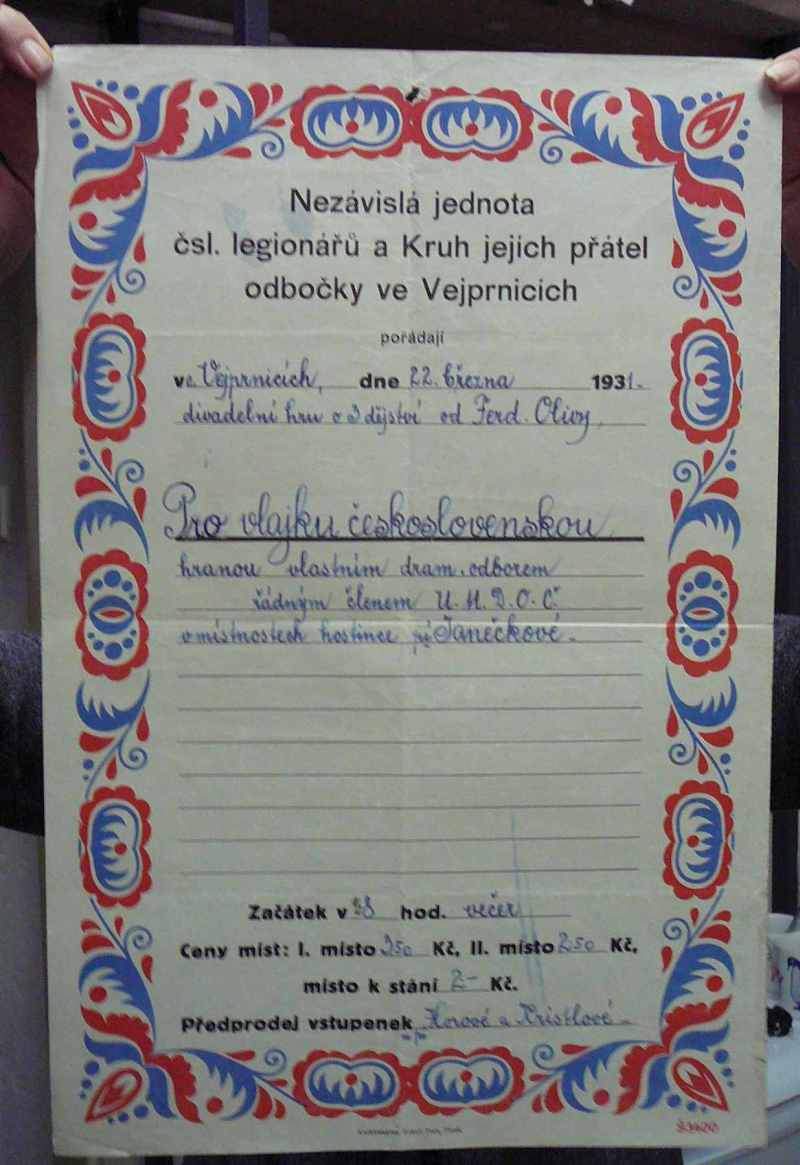 Nezávislá jednota
čsl. legionářů a Kruh jejich přátel
odbočky ve Vejprnicích
pořádají
ve Vejprnicích, dne 22. března 1931.
divadelní hru o 3 dějství od Ferd. Olivy,
Pro vlajku československou
hranou vlastním dram. odborem
řádným členem Ú.M.D.O.Č.
v místnostech hostince pí Janečkové.
Začátek v 8 hod. večer
Ceny míst: I. místo 350 Kč, II. místo 250 Kč,
místo k stání 2- Kč.
Předprodej vstupenek Korové a Kristlové